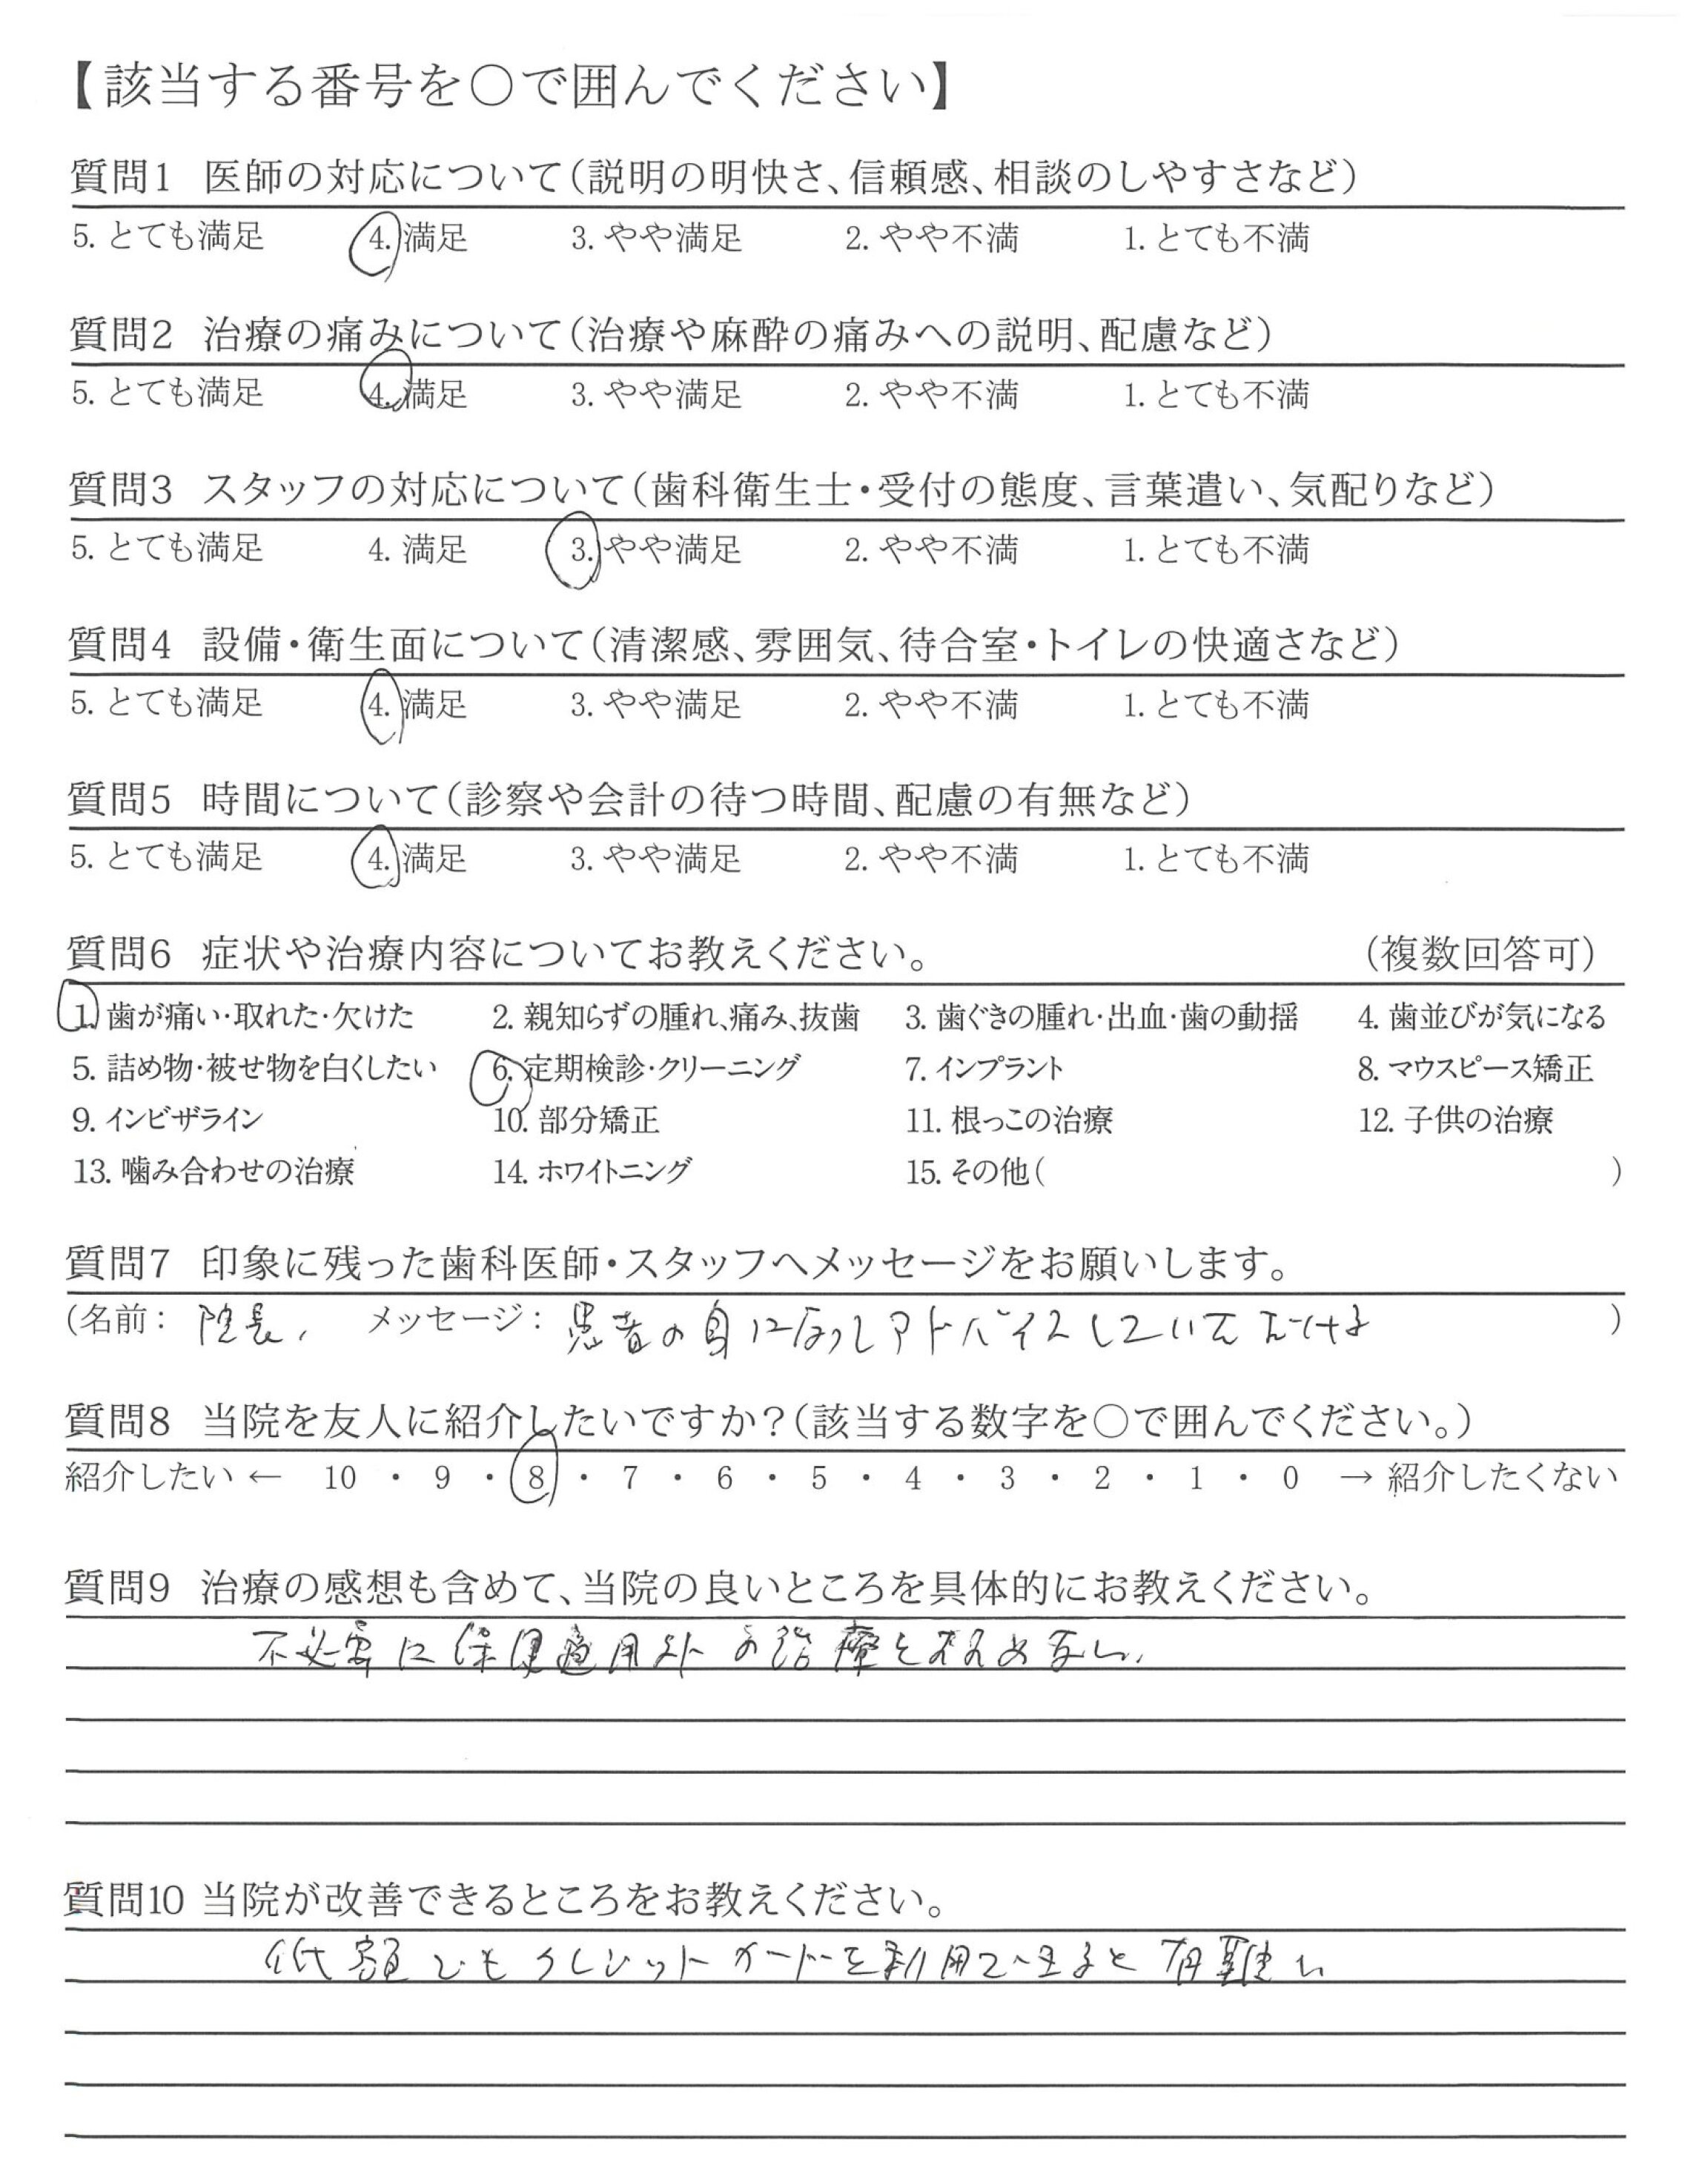 【該当する番号を○で囲んでください】
質問1 医師の対応について（説明の明快さ、信頼感、相談のしやすさなど）
5. とても満足 4. 満足 3. やや満足 2. やや不満 1. とても不満
質問2 治療の痛みについて（治療や麻酔の痛みへの説明、配慮など）
5. とても満足 4. 満足 3. やや満足 2. やや不満 1. とても不満
質問3 スタッフの対応について（歯科衛生士・受付の態度、言葉遣い、気配りなど）
5. とても満足 4. 満足 3. やや満足 2. やや不満 1. とても不満
質問4 設備・衛生面について（清潔感、雰囲気、待合室・トイレの快適さなど）
5. とても満足 4. 満足 3. やや満足 2. やや不満 1. とても不満
質問5 時間について（診察や会計の待つ時間、配慮の有無など）
5. とても満足 4. 満足 3. やや満足 2. やや不満 1. とても不満
質問6 症状や治療内容についてお教えください。 （複数回答可）
1. 歯が痛い・取れた・欠けた 2. 親知らずの腫れ、痛み、抜歯 3. 歯ぐきの腫れ・出血・歯の動揺 4. 歯並びが気になる
5. 詰め物・被せ物を白くしたい 6. 定期検診・クリーニング 7. インプラント 8. マウスピース矯正
9. インビザライン 10. 部分矯正 11. 根っこの治療 12. 子供の治療
13. 噛み合わせの治療 14. ホワイトニング 15. その他（ ）
質問7 印象に残った歯科医師・スタッフへメッセージをお願いします。
（名前： 院長、 メッセージ： 患者の身になってアドバイスしていただける ）
質問8 当院を友人に紹介したいですか？（該当する数字を○で囲んでください。）
紹介したい ← 10 ・ 9 ・ 8 ・ 7 ・ 6 ・ 5 ・ 4 ・ 3 ・ 2 ・ 1 ・ 0 → 紹介したくない
質問9 治療の感想も含めて、当院の良いところを具体的にお教えください。
不必要に保険適用外の治療をすすめない。
質問10 当院が改善できるところをお教えください。
低額でもクレジットカードを利用できると有難い